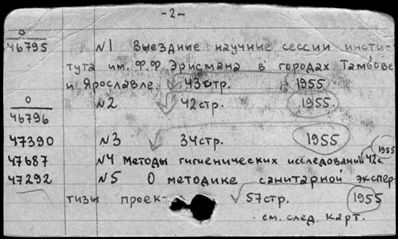 -2-
0
46795 N1 Выездные научные сессии инсти-
тута им. Ф.Ф. Эрисмана в городах Тамбове
и Ярославле. 43стр. 1955
0 N2 42стр. 1955.
46796
47390 N3 34стр. 1955
47687 N4 Методы гигиенических исследований 42с. 1955
47292 N5 О методике санитарной экспер-
тизы проек- 57стр. 1955
см. след. карт.